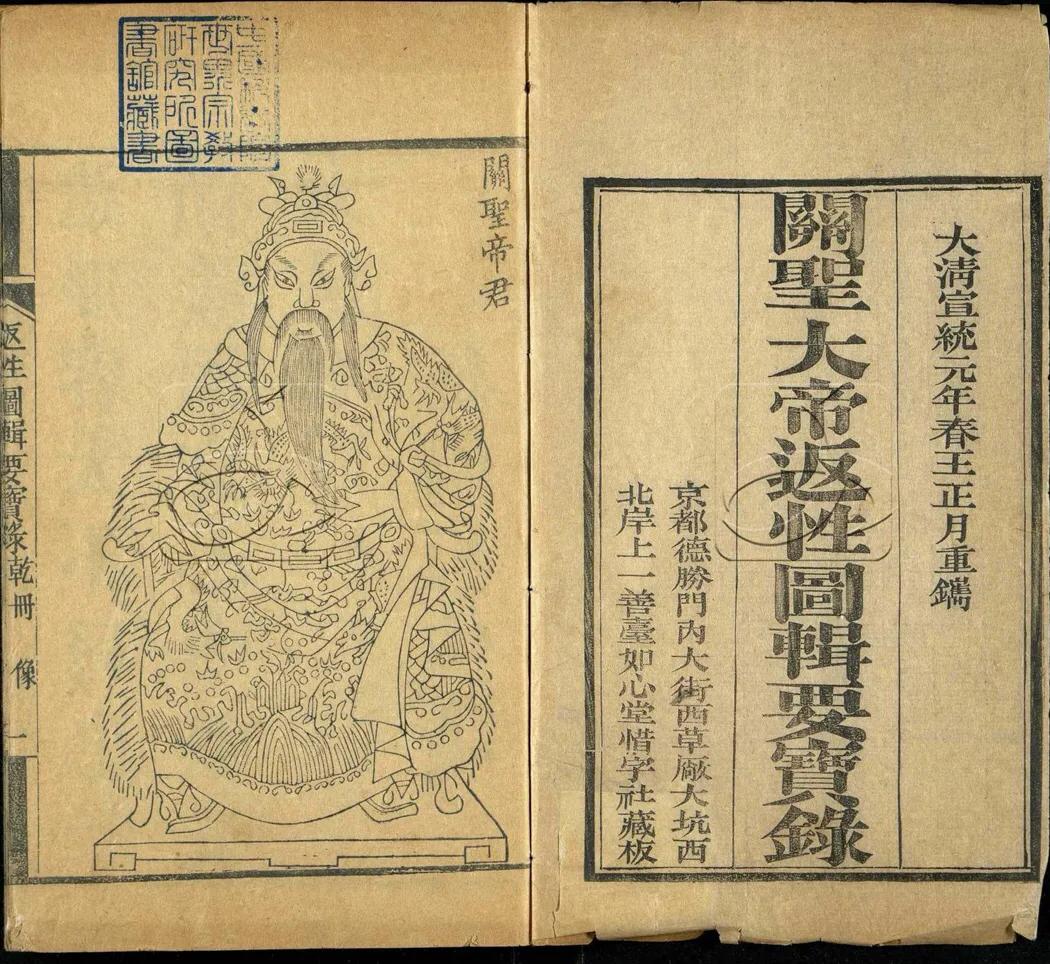 大淸宣統元年春王正月重鐫
關聖大帝返性圖輯要寶錄
京都德勝門內大街西草厰大坑西
北岸上一善臺如心堂惜字社藏板
關聖帝君
世界宗教
研究所圖
書舘藏書
返性圖輯要寶錄乾冊 像 一